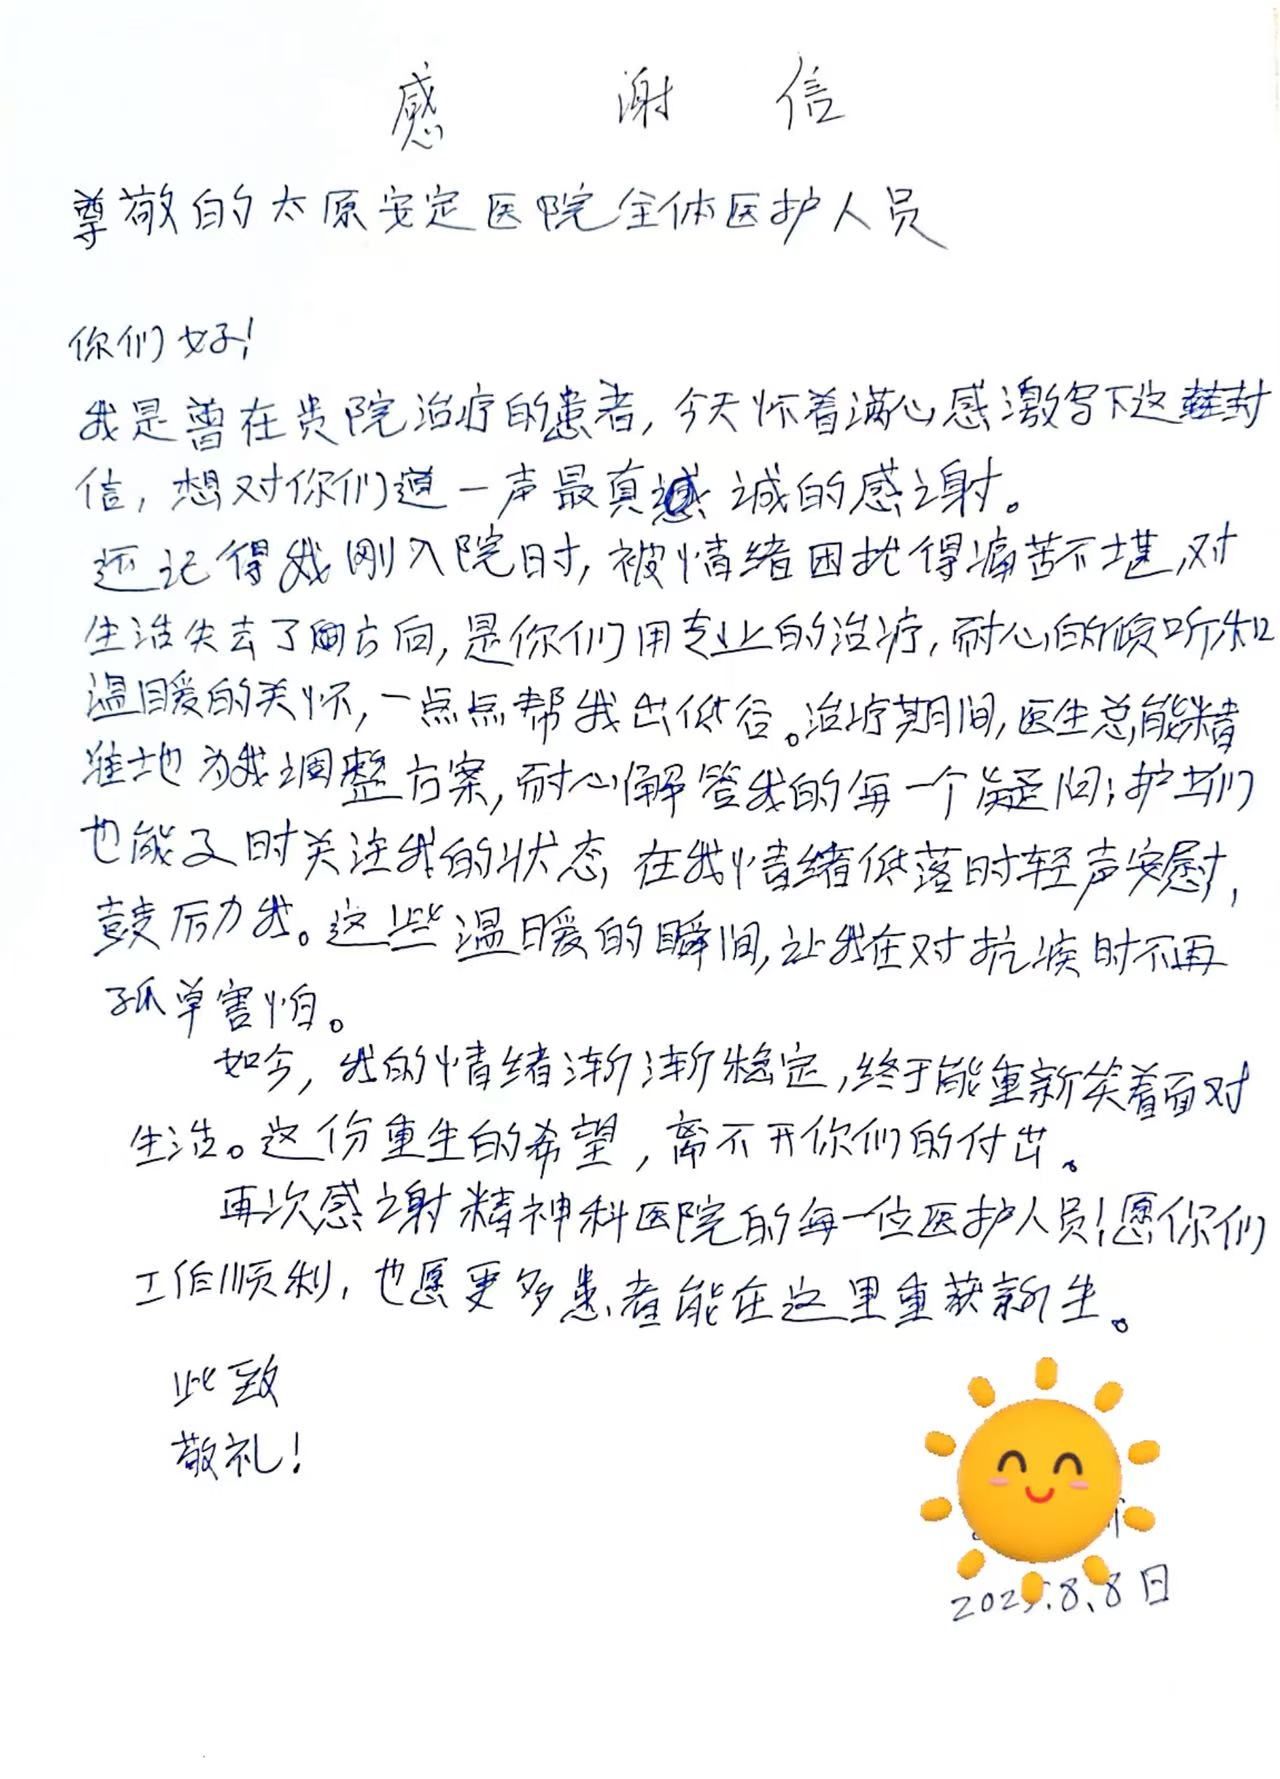 感谢信
尊敬的太原安定医院全体医护人员
你们好！
我是曾在贵院治疗的患者，今天怀着满心感激写下这封
信，想对你们道一声最真诚的感谢。
还记得我刚入院时，被情绪困扰得痛苦不堪，对
生活失去了方向，是你们用专业的治疗，耐心的倾听和
温暖的关怀，一点点帮我出低谷。治疗期间，医生总能精
准地为我调整方案，耐心解答我的每一个疑问；护士们
也能及时关注我的状态，在我情绪低落时轻声安慰，
鼓励我。这些温暖的瞬间，让我在对抗疾时不再
孤单害怕。
如今，我的情绪渐渐稳定，终于能重新笑着面对
生活。这份重生的希望，离不开你们的付出。
再次感谢精神科医院的每一位医护人员！愿你们
工作顺利，也愿更多患者能在这里重获新生。
此致
敬礼！
2025.8.8日